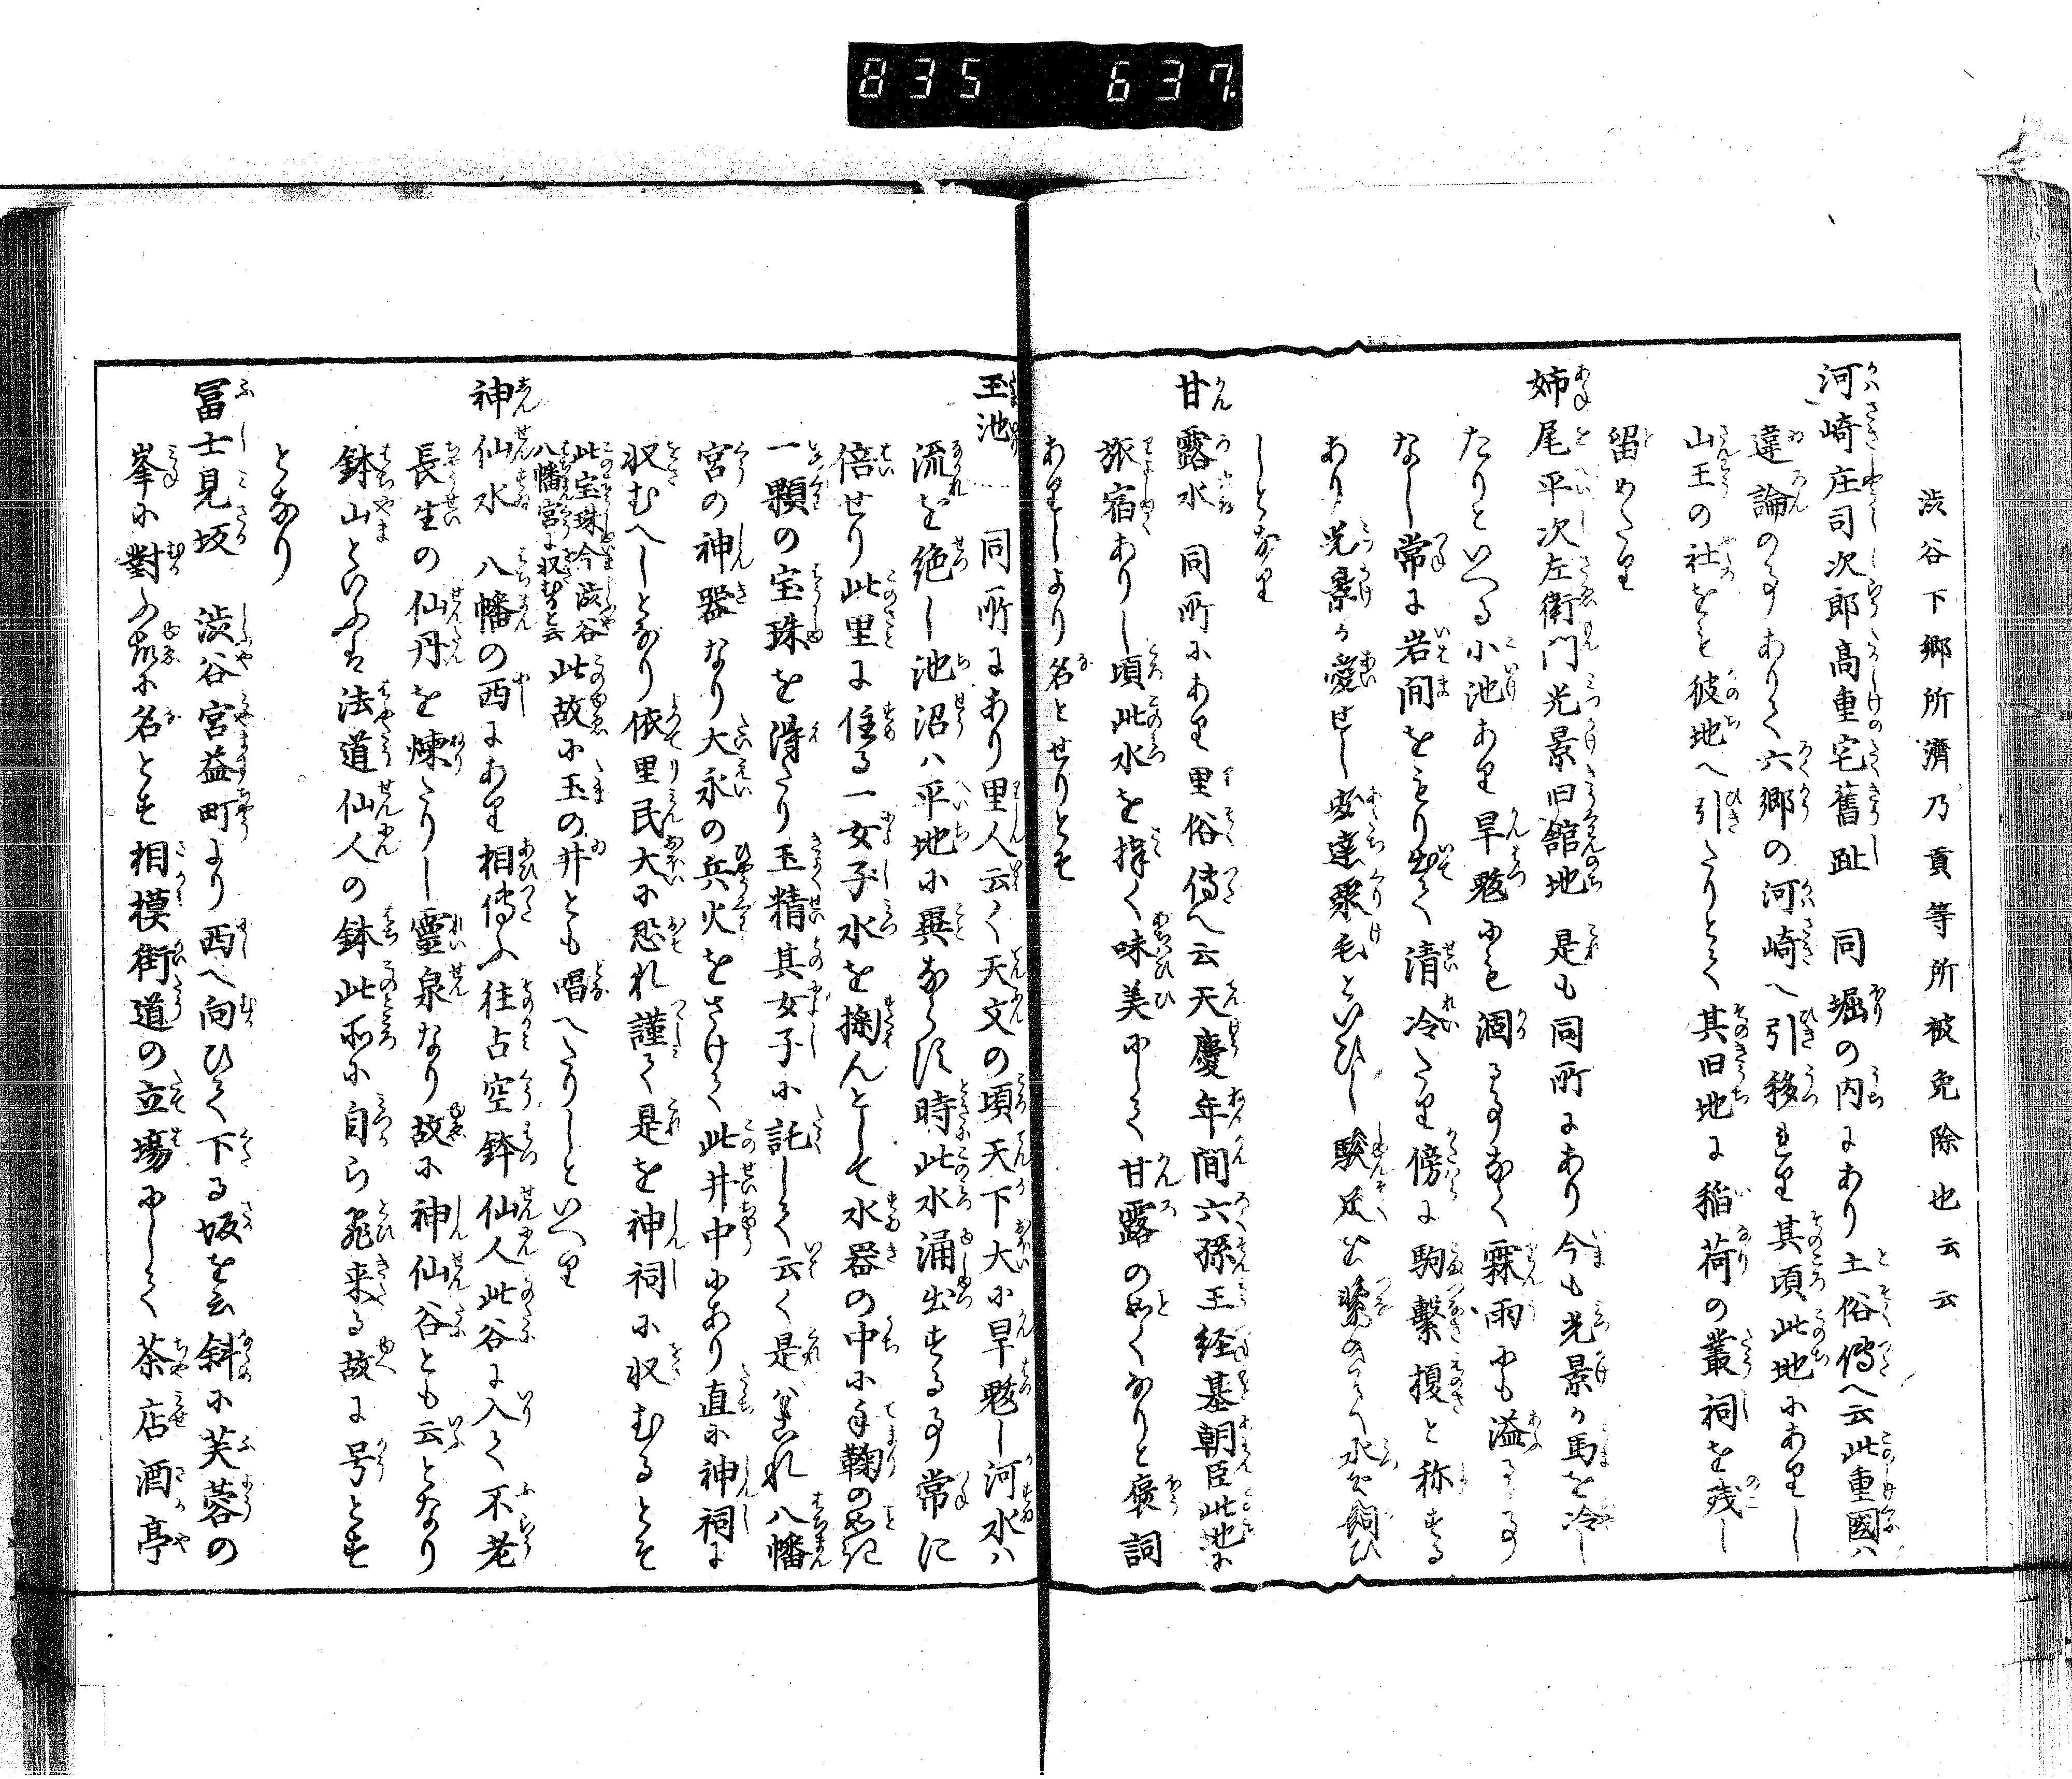 835 637
渋谷下郷所濟乃貢等所被免除也云云
河崎庄司次郎高重宅舊趾 同堀の内にあり土俗傳へ云此重國ハ
違論の事ありて六郷の河崎へ引移れり其頃此地にありし
山王の社をも彼地へ引たりとて其旧地に稲荷の叢祠を残し
留めたり
姉尾平次左衛門光景旧舘地 是も同所にあり今も光景か馬を冷し
たりといへる小池あり旱魃にも涸るゝ事なく霖雨にも溢るゝ事
なし常に岩間をもり出て清冷たり傍に駒繋榎と称する
あり光景か愛せし栗毛といひし駿足を繋き水を飼ひ
しとなり
甘露水 同所にあり里俗傳へ云天慶年間六孫王経基朝臣此地に
旅宿ありし頃此水を掬く味美にして甘露の如くなりと褒詞
ありしより名とせりとそ
玉池 同所にあり里人云く天文の頃天下大に旱魃し河水ハ
流を絶し池沼ハ平地に異ならす時此水涌出する事常に
倍せり此里に住る一女子水を掬んとして水器の中に手鞠の如き
一顆の宝珠を得たり玉精其女子に託して云く是はこれ八幡
宮の神器なり大永の兵火をさけて此井中にあり直に神祠に
収むへしとなり依里民大に恐れ謹て是を神祠に収むるとそ
此宝珠今渋谷八幡宮に収むると云 此故に玉の井とも唱へたりしといへり
神仙水 八幡の西にあり相傳ふ往古空鉢仙人此谷に入て不老
長生の仙丹を煉たりし靈泉なり故に神仙谷とも云となり
鉢山といふは法道仙人の鉢此所に自ら飛来る故に号とす
となり
冨士見坂 渋谷宮益町より西へ向ひて下る坂を云斜に芙蓉の
峯に對ふ故に名とす相模街道の立場にして茶店酒亭